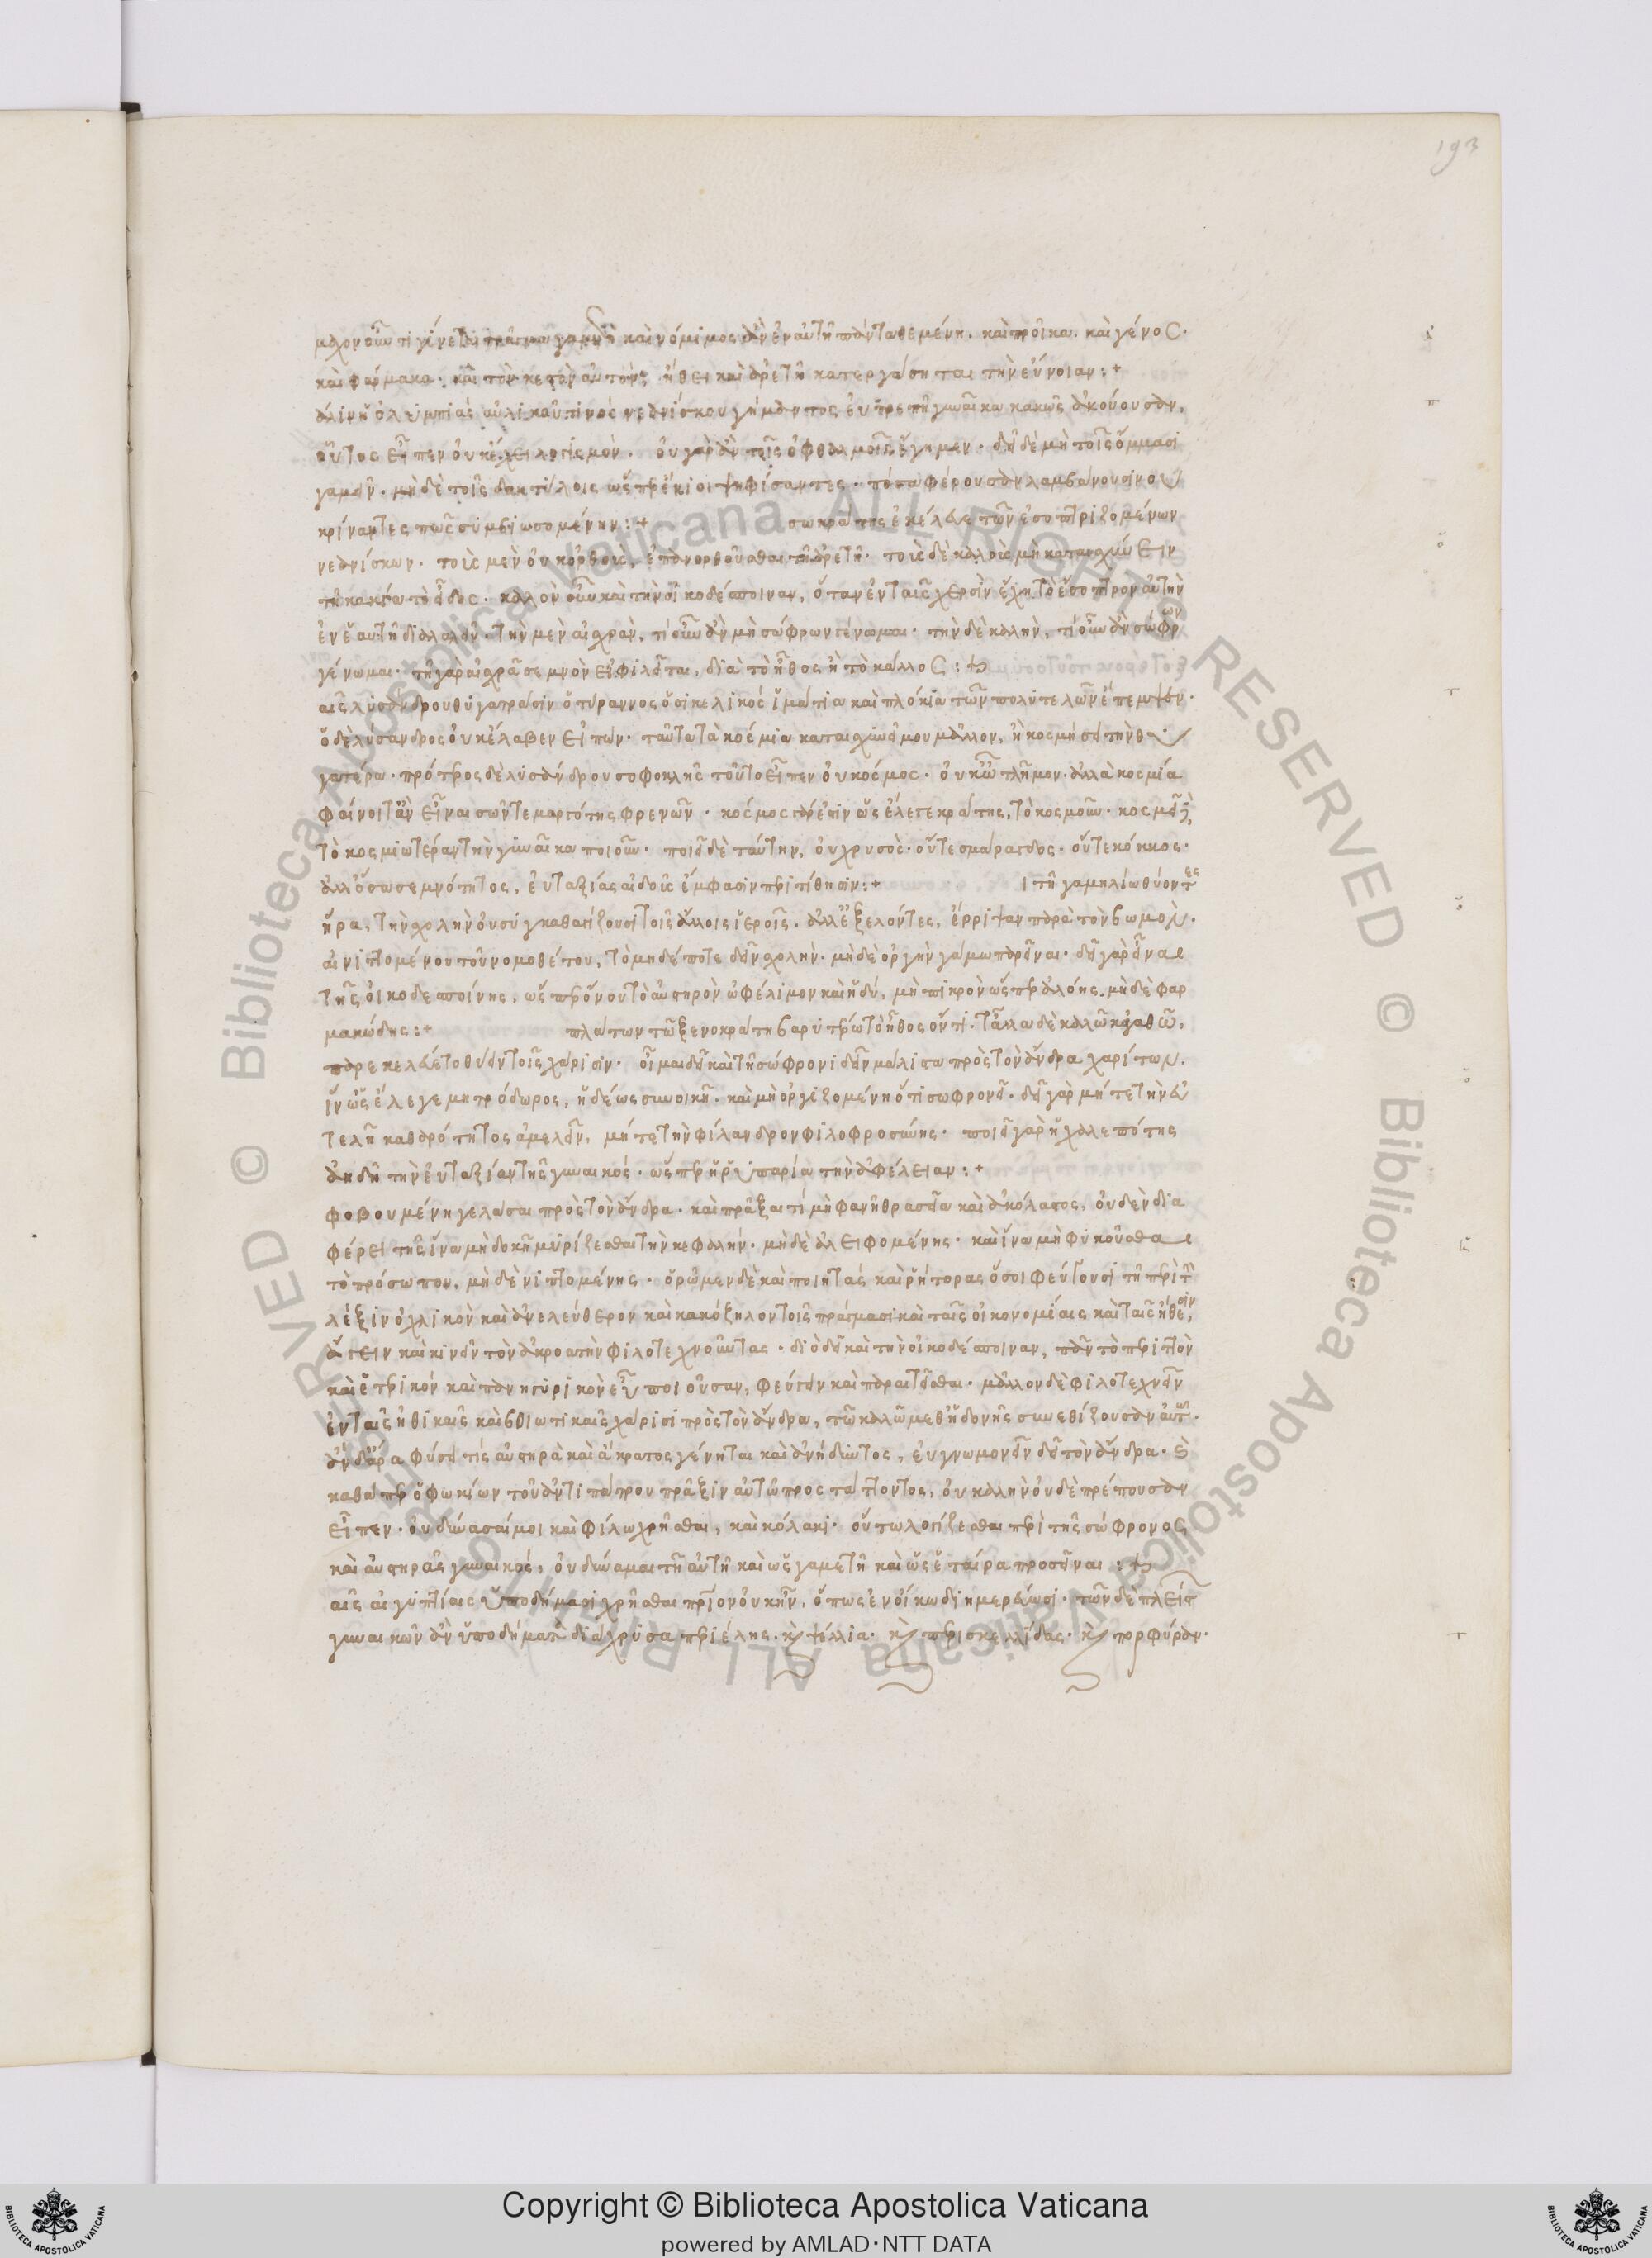 193
μαχον οὖν τι γίνεται πρᾶγμα γαμετὴ καὶ νόμιμος ἂν ἐν αὐτῇ πάντα θεμένη. καὶ προῖκα. καὶ γένος·
καὶ φάρμακα. καὶ τὸν κεστὸν αὐτὸν; ἤθει καὶ ἀρετῇ κατεργάσηται τὴν εὔνοιαν:+
άλιν ἡ ὀλυμπιὰς αὐλικοῦ τινὸς νεανίσκου γήμαντος εὐπρεπῆ γυναῖκα κακῶς ἀκούουσαν,
οὗτος εἶπεν οὐκ ἔχει λογισμόν. οὐ γὰρ ἂν τοῖς ὀφθαλμοῖς ἔγημεν. δεῖ δὲ μὴ τοῖς ὄμμασι
γαμεῖν. μὴ δὲ τοῖς δακτύλοις ὥσπερ ἔνιοι ψηφίσαντες. πόσα φέρουσαν λαμβάνουσιν οὐ
κρίναντες πῶς συμβιωσομένην:+ σωκράτης ἐκέλευε τῶν ἐσοπτριζομένων
νεανίσκων. τοὺς μὲν οὐκ ὀρθοὺς, ἐπανορθοῦσθαι τῇ ἀρετῇ. τοὺς δὲ καλοὺς μὴ καταισχύνειν
τῇ κακίᾳ τὸ εἶδος. καλὸν οὖν καὶ τὴν οἰκοδέσποιναν, ὅταν ἐν ταῖς χερσὶν ἔχῃ τὸ ἔσοπτρον αὐτὴν
ἐν ἑαυτῇ διαλαλεῖν. τὴν μὲν αἰσχρὰν, τί οὖν ἂν μὴ σώφρων γένωμαι. τὴν δὲ καλὴν, τί οὖν ἂν σώφρων
γένωμαι. τῇ γὰρ αἰσχρᾷ σεμνὸν εἰ φιλεῖται, διὰ τὸ ἦθος ἢ τὸ κάλλος:+
αῖς λυσάνδρου θυγατράσιν ὁ τύραννος ὁ σικελικὸς ἱμάτια καὶ πλόκια τῶν πολυτελῶν ἔπεμψεν.
ὁ δὲ λύσανδρος οὐκ ἔλαβεν εἰπὼν. ταῦτα τὰ κόσμια καταισχυνεῖ μου μᾶλλον, ἢ κοσμήσει τὴν θυ
γατέρα. πρότερος δὲ λυσάνδρου σοφοκλῆς τοῦτο εἶπεν οὐ κόσμος. οὐκ ὦ τλῆμον. ἀλλὰ κοσμία
φαίνοιτ' ἂν εἶναι σῶν τε μαργότης φρενῶν. κόσμος γάρ ἐστιν ὡς ἔλεγε κράτης, τὸ κοσμοῦν. κοσμεῖ δὲ
τὸ κοσμιωτέραν τὴν γυναῖκα ποιοῦν. ποιεῖ δὲ ταύτην, οὐ χρυσὸς. οὔτε σμάραγδος. οὔτε κόκκος.
ἀλλ' ὅσα σεμνότητος, εὐταξίας αἰδοῦς ἔμφασιν περιτίθησιν:+ ι τῇ γαμηλίῳ θύοντες
ἥρα, τὴν χολὴν οὐ συγκαθαγίζουσι τοῖς ἄλλοις ἱεροῖς. ἀλλ' ἐξελόντες, ἔρριψαν παρὰ τὸν βωμὸν.
αἰνιττομένου τοῦ νομοθέτου, τὸ μηδέποτε δεῖν χολὴν. μὴ δὲ ὀργὴν γάμω παρεῖναι. δεῖ γὰρ εἶναι
τῆς οἰκοδεσποίνης, ὥσπερ οἴνου τὸ αὐστηρὸν ὠφέλιμον καὶ ἡδύ, μὴ πικρὸν ὥσπερ ἀλόης. μὴ δὲ φαρ
μακώδης:+ πλάτων τῷ ξενοκράτη βαρυτέρῳ τὸ ἦθος ὄντι. τἆλλα δὲ καλῷ κἀγαθῷ,
παρεκελεύετο θύειν τοῖς χάρισιν. οἶμαι δεῖ καὶ τῇ σώφρονι δεῖν μάλιστα πρὸς τὸν ἄνδρα χαρίτων.
ἵν' ὡς ἔλεγε μητρόδωρος, ἡδέως συνοικῇ. καὶ μὴ ὀργιζομένη ὅτι σωφρονεῖ. δεῖ γὰρ μήτε τὴν εὐ
τελῆ καθαρότητος ἀμελεῖν, μήτε τὴν φίλανδρον φιλοφροσύνης. ποιεῖ γὰρ ἡ χαλεπότης
ἀηδῆ τὴν εὐταξίαν τῆς γυναικός. ὥσπερ ἡ ῥυπαρία τὴν ἀφέλειαν:+
φοβουμένη γελάσαι πρὸς τὸν ἄνδρα. καὶ πρᾶξαί τι μὴ φανῇ θρασεῖα καὶ ἀκόλαστος, οὐδὲν δια
φέρει τῆς ἵνα μὴ δοκῇ μυρίζεσθαι τὴν κεφαλήν. μὴ δὲ ἀλειφομένης. καὶ ἵνα μὴ φυκοῦσθαι
τὸ πρόσωπον, μὴ δὲ νιπτομένης. ὁρῶμεν δὲ καὶ ποιητὰς καὶ ῥήτορας ὅσοι φεύγουσι τῇ περὶ τὴν
λέξιν ὀχλικὸν καὶ ἀνελεύθερον καὶ κακόζηλον τοῖς πράγμασι καὶ ταῖς οἰκονομίαις καὶ ταῖς ἤθεσιν,
ἄγειν καὶ κινεῖν τὸν ἀκροατὴν φιλοτεχνοῦντας. διὸ δεῖ καὶ τὴν οἰκοδέσποιναν, πᾶν τὸ περιττὸν
καὶ ἑταιρικὸν καὶ πανηγυρικὸν εὖ ποιοῦσαν, φεύγειν καὶ παραιτεῖσθαι. μᾶλλον δὲ φιλοτεχνεῖν
ἐν ταῖς ἠθικαῖς καὶ βιωτικαῖς χάρισι πρὸς τὸν ἄνδρα, τῷ καλῷ μεθ' ἡδονῆς συνεθίζουσαν αὐτὸν.
ἂν δ' ἄρα φύσει τὶς αὐστηρὰ καὶ ἄκρατος γένηται καὶ ἀνήδυντος, εὐγνωμονεῖν δεῖ τὸν ἄνδρα. καὶ
καθάπερ ὁ φωκίων τοῦ ἀντιπάτρου πρᾶξιν αὐτῷ προστάττοντος, οὐ καλὴν οὐδὲ πρέπουσαν
εἶπεν. οὐ δύνασαί μοι καὶ φίλω χρῆσθαι, καὶ κόλακι. οὕτω λογίζεσθαι περὶ τῆς σώφρονος
καὶ αὐστηρᾶς γυναικός, οὐ δύναμαι τῇ αὐτῇ καὶ ὡς γαμετῇ καὶ ὡς ἑταίρα προσεῖναι:+
αῖς αἰγυπτίαις ὑποδήμασι χρῆσθαι πάτριον οὐκ ἦν, ὅπως ἐν οἴκω διημερεύωσι. τῶν δὲ πλείστ
γυναικῶν ἂν ὑποδήματα διάχρυσα περιέλης. κ ψέλλια. κ περισκελλίδας. κ πορφύραν.